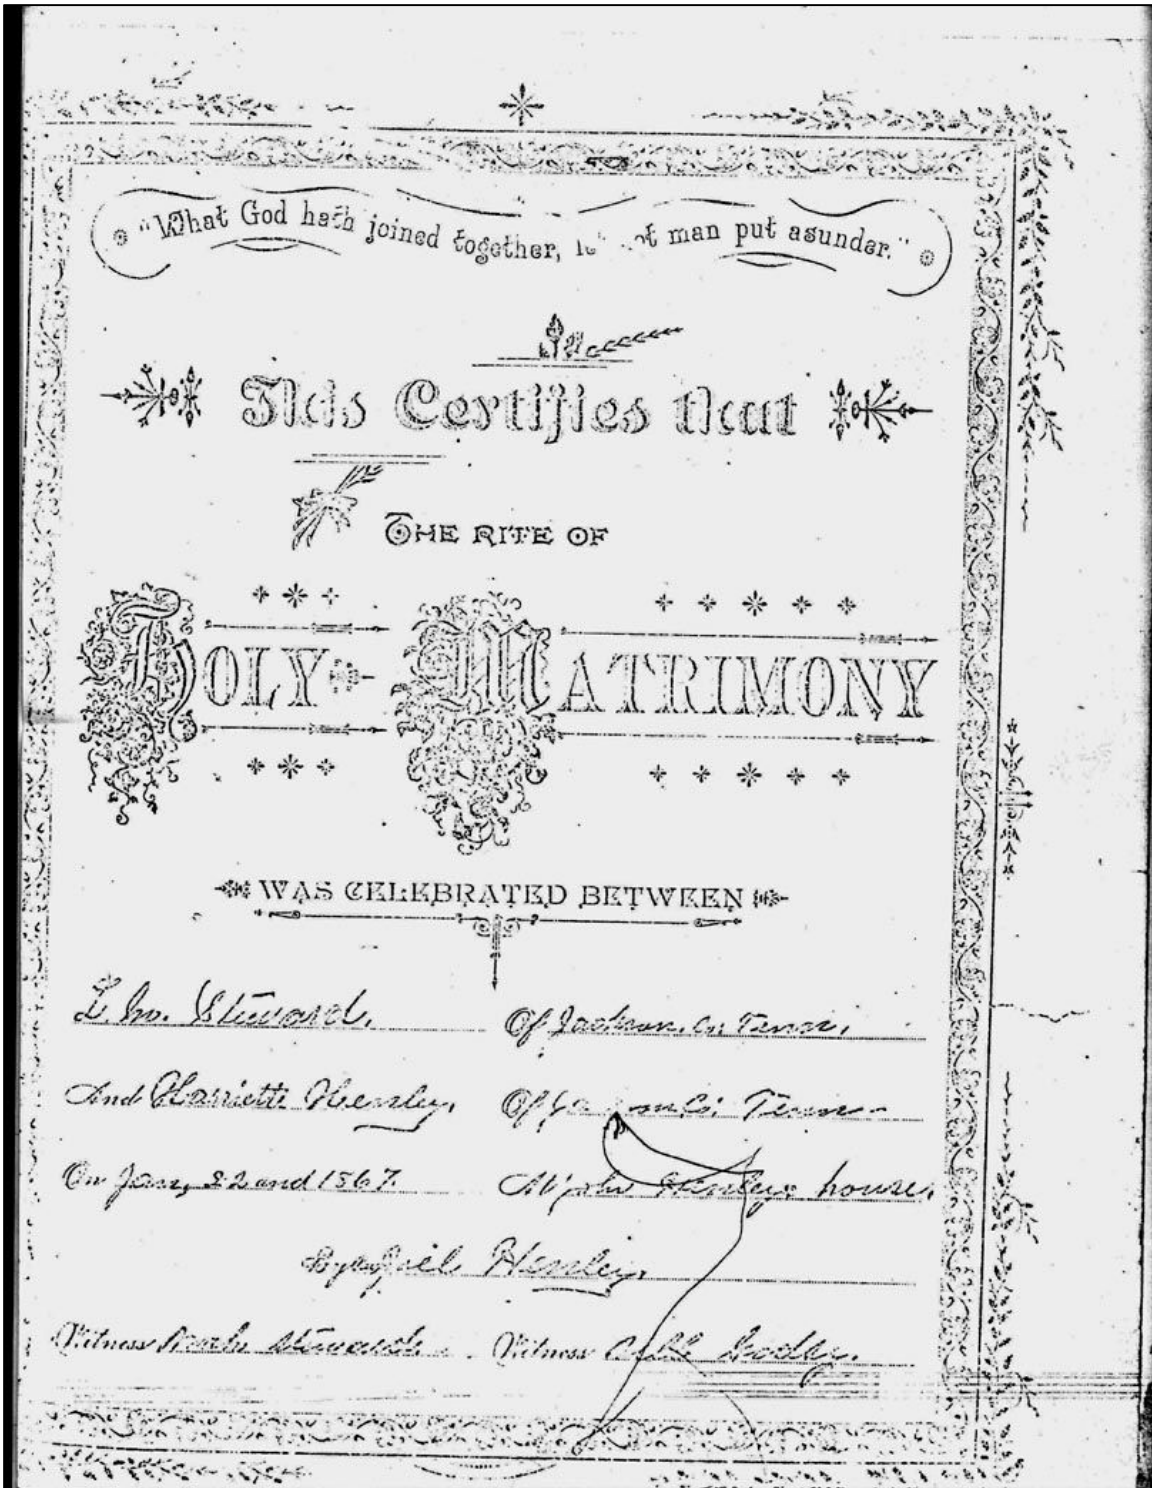 "What God hath joined together, let not man put asunder."
This Certifies that
THE RITE OF
HOLY MATRIMONY
WAS CELEBRATED BETWEEN
Steward. Of Jackson. Co. Tenn.
And Harriette Henley. Of Co. Tenn.
On Jan, 22and 1867. At John Henleys house.
By Henley.
Witness Witness